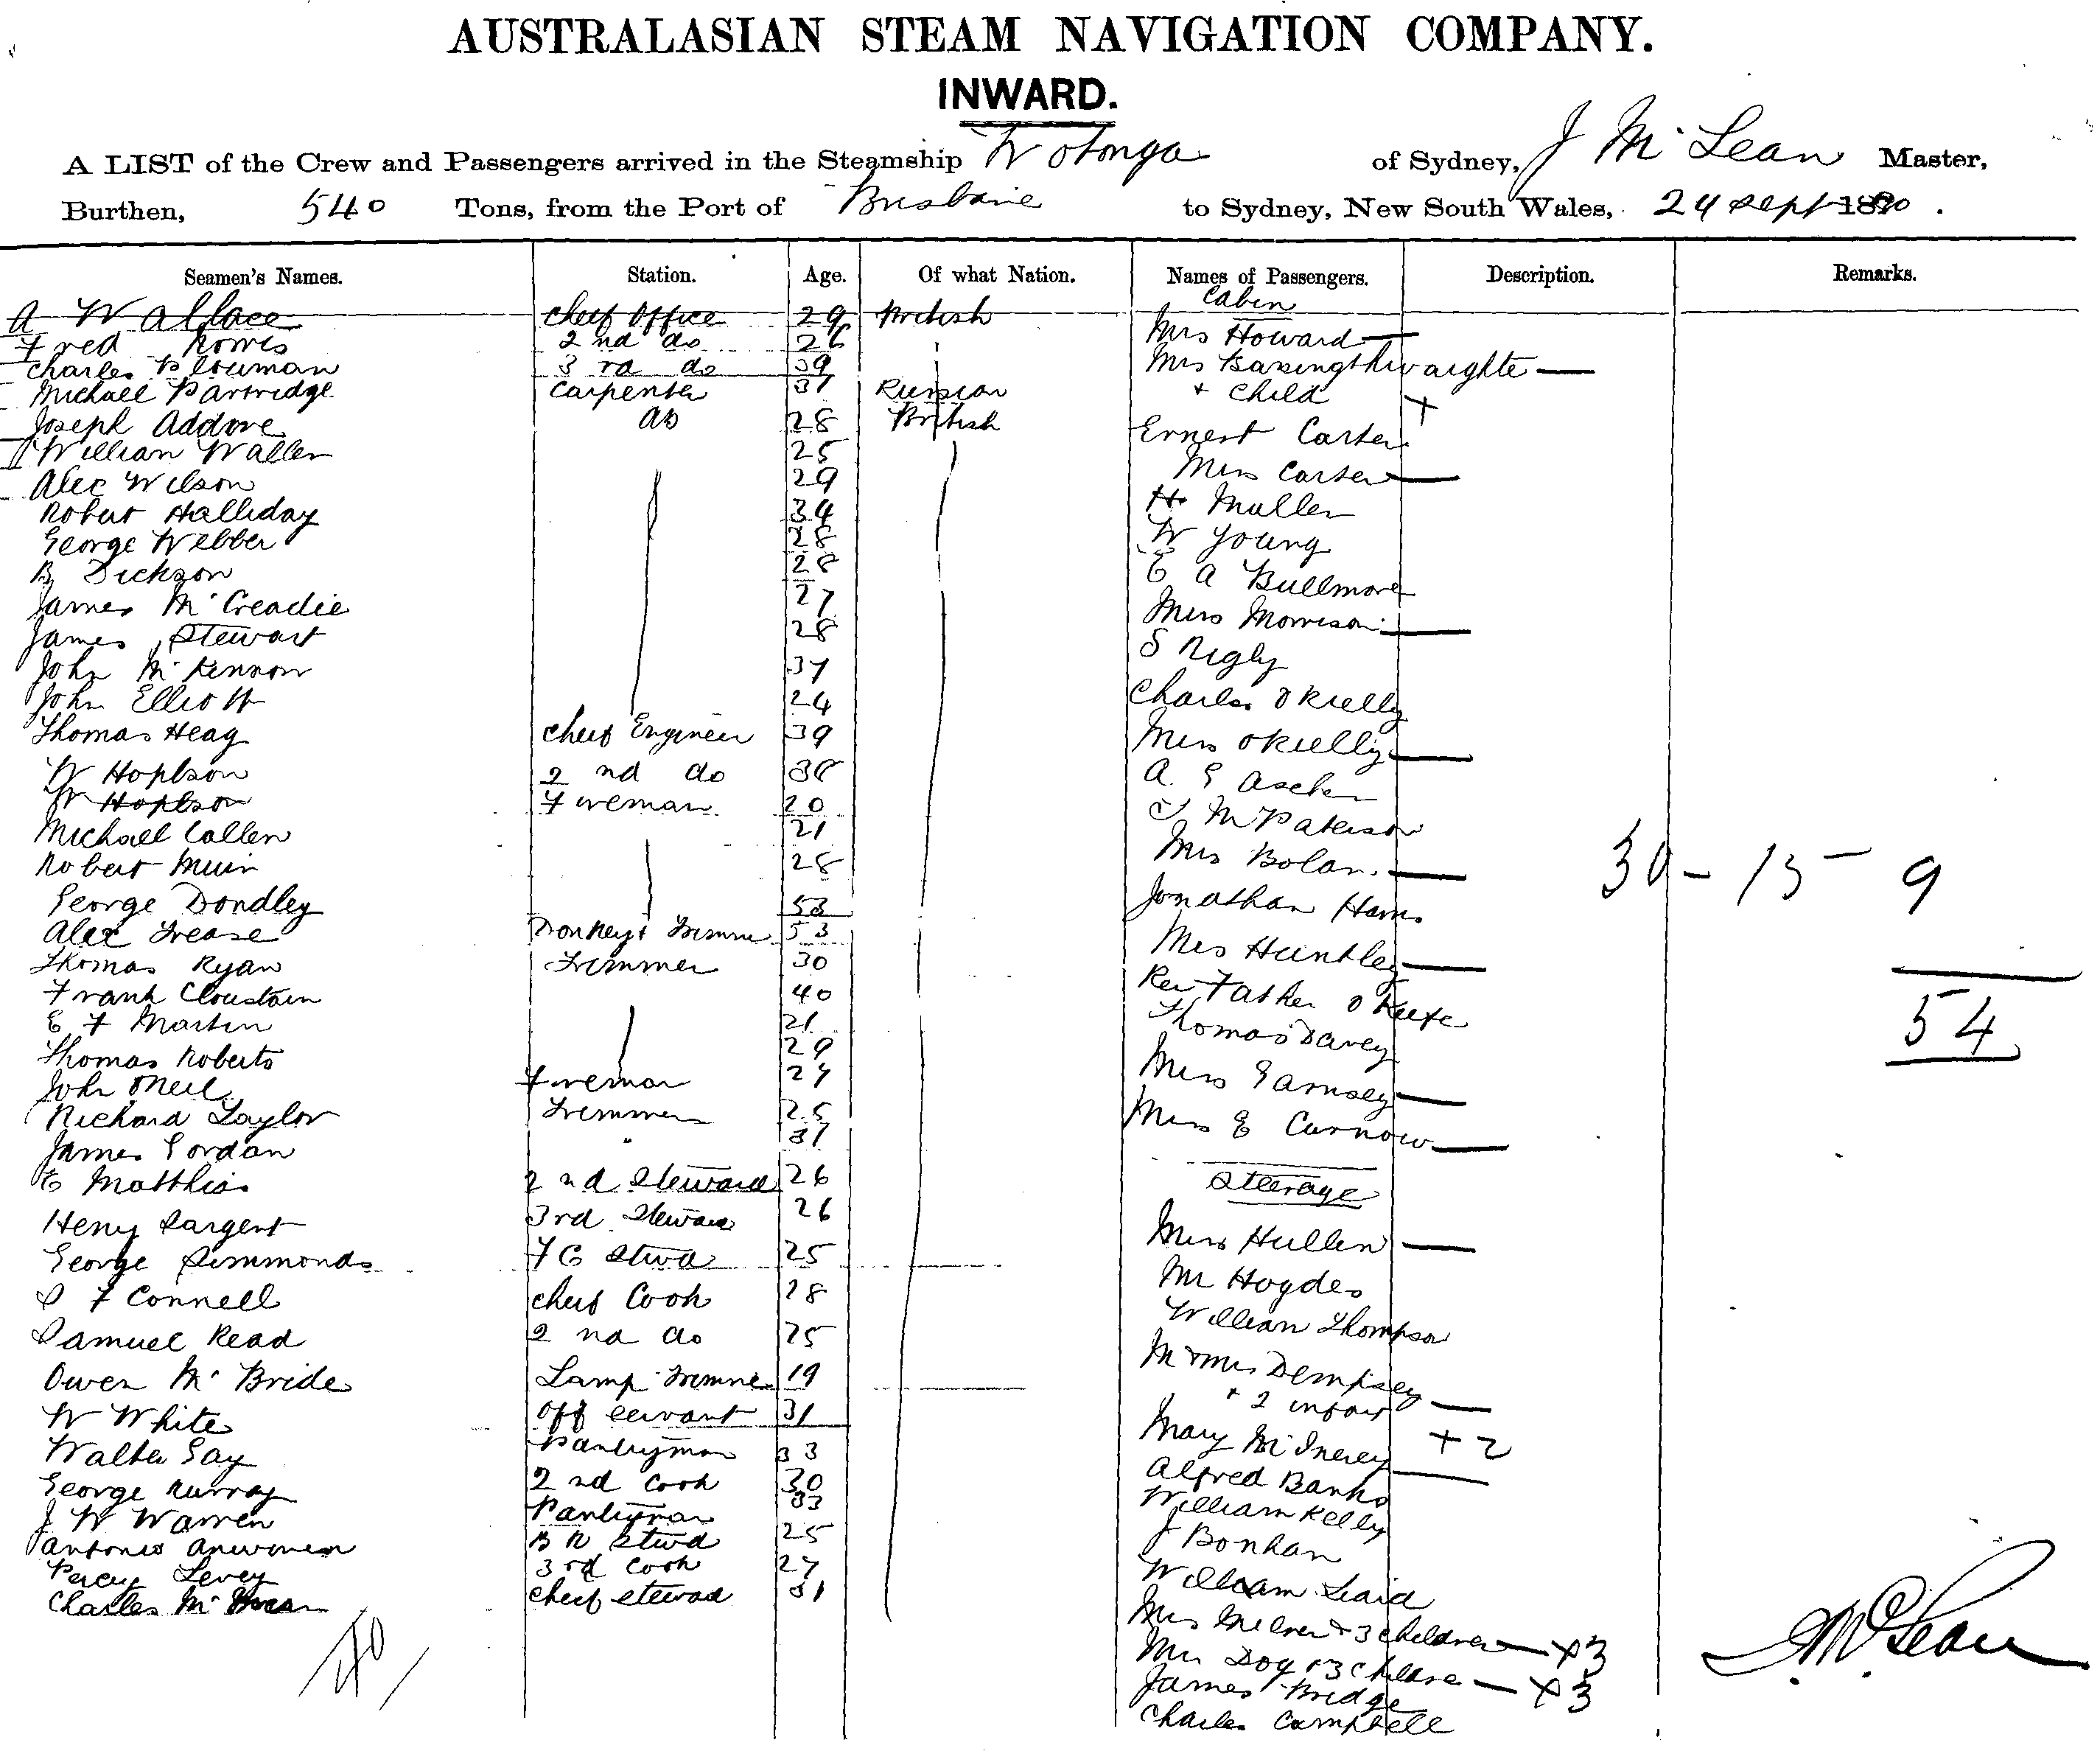 AUSTRALASIAN STEAM NAVIGATION COMPANY.
INWARD.
A LIST of the Crew and Passengers arrived in the Steamship Wotonga of Sydney, J McLean Master,
Burthen, 540 Tons, from the Port of Brisbane to Sydney, New South Wales, 24 Sept 1880.
Seamen's Names. Station. Age. Of what Nation. Names of Passengers. Description. Remarks.
Cabin
A Wallace Chief Office 29 British Mrs Howard —
Fred 2nd do 26
Charles Plowman 3rd do 39 Mrs —
Michael Partridge Carpenter 31 Russian + Child +
Joseph Addove AB 28 British Ernest Carter
William Waller 25
Alec Wilson 29 Mrs Carter —
Robert Halliday 34 H Muller
George Webber 28 W Young
B Dickson 28 E A Bullmore
James McCreadie 27 Miss Morrison —
James Stewart 28 S Rigly
John McKennon 37
John Elliott 24 Charles OKielly
Thomas Heag Chief Engineer 39 Mrs OKielly —
W Hopbson 2nd do 38 A. E Ascher
W Hopbson Fireman 20 McPaterson
Michael Callen 21
Robert Muir 28 Mrs Bolan. — 30 - 15 - 9
George Dondley 53 Jonathan Harris
Alex Frease Donkey & Trimmer 53 Mrs Huntley —
Thomas Ryan Trimmer 30 Rev Father OKeefe
Frank Cloustain 40 Thomas Davey 54
E F Martin 21
Thomas Roberts 29 Miss Garnsey —
John ONeil Fireman 27
Richard Taylor Trimmer 25 Miss E Curnow —
James Gordan " 31
E Matthias 2nd Steward 26 Steerage
Heny Sargent 3rd Steward 26 Miss Hullen —
George Simmonds F C Stwd 25 Mr Hogdes
F Connell Chief Cook 28 William Thompson
Samuel Read 2nd do 25 Mr & Mrs Dempsey —
Owen McBride Lamp Trimmer 19 + 2 infant + 2
W White Off Servant 31 Mary McInerey —
Walter Gay Pantryman 33 Alfred Banks
George Murray 2nd Cook 30 William Kelly
J W Warren Pantryman 33 J Bonham
Antonio B R Stwd 25 William Laird
Percy Levey 3rd Cook 27 Mrs Milner & 3 Children — +3
Charles Mc Chief Steward 31 Mrs Day & 3 Children — +3
James Bridge
Charles Campbell
40
J. McLean